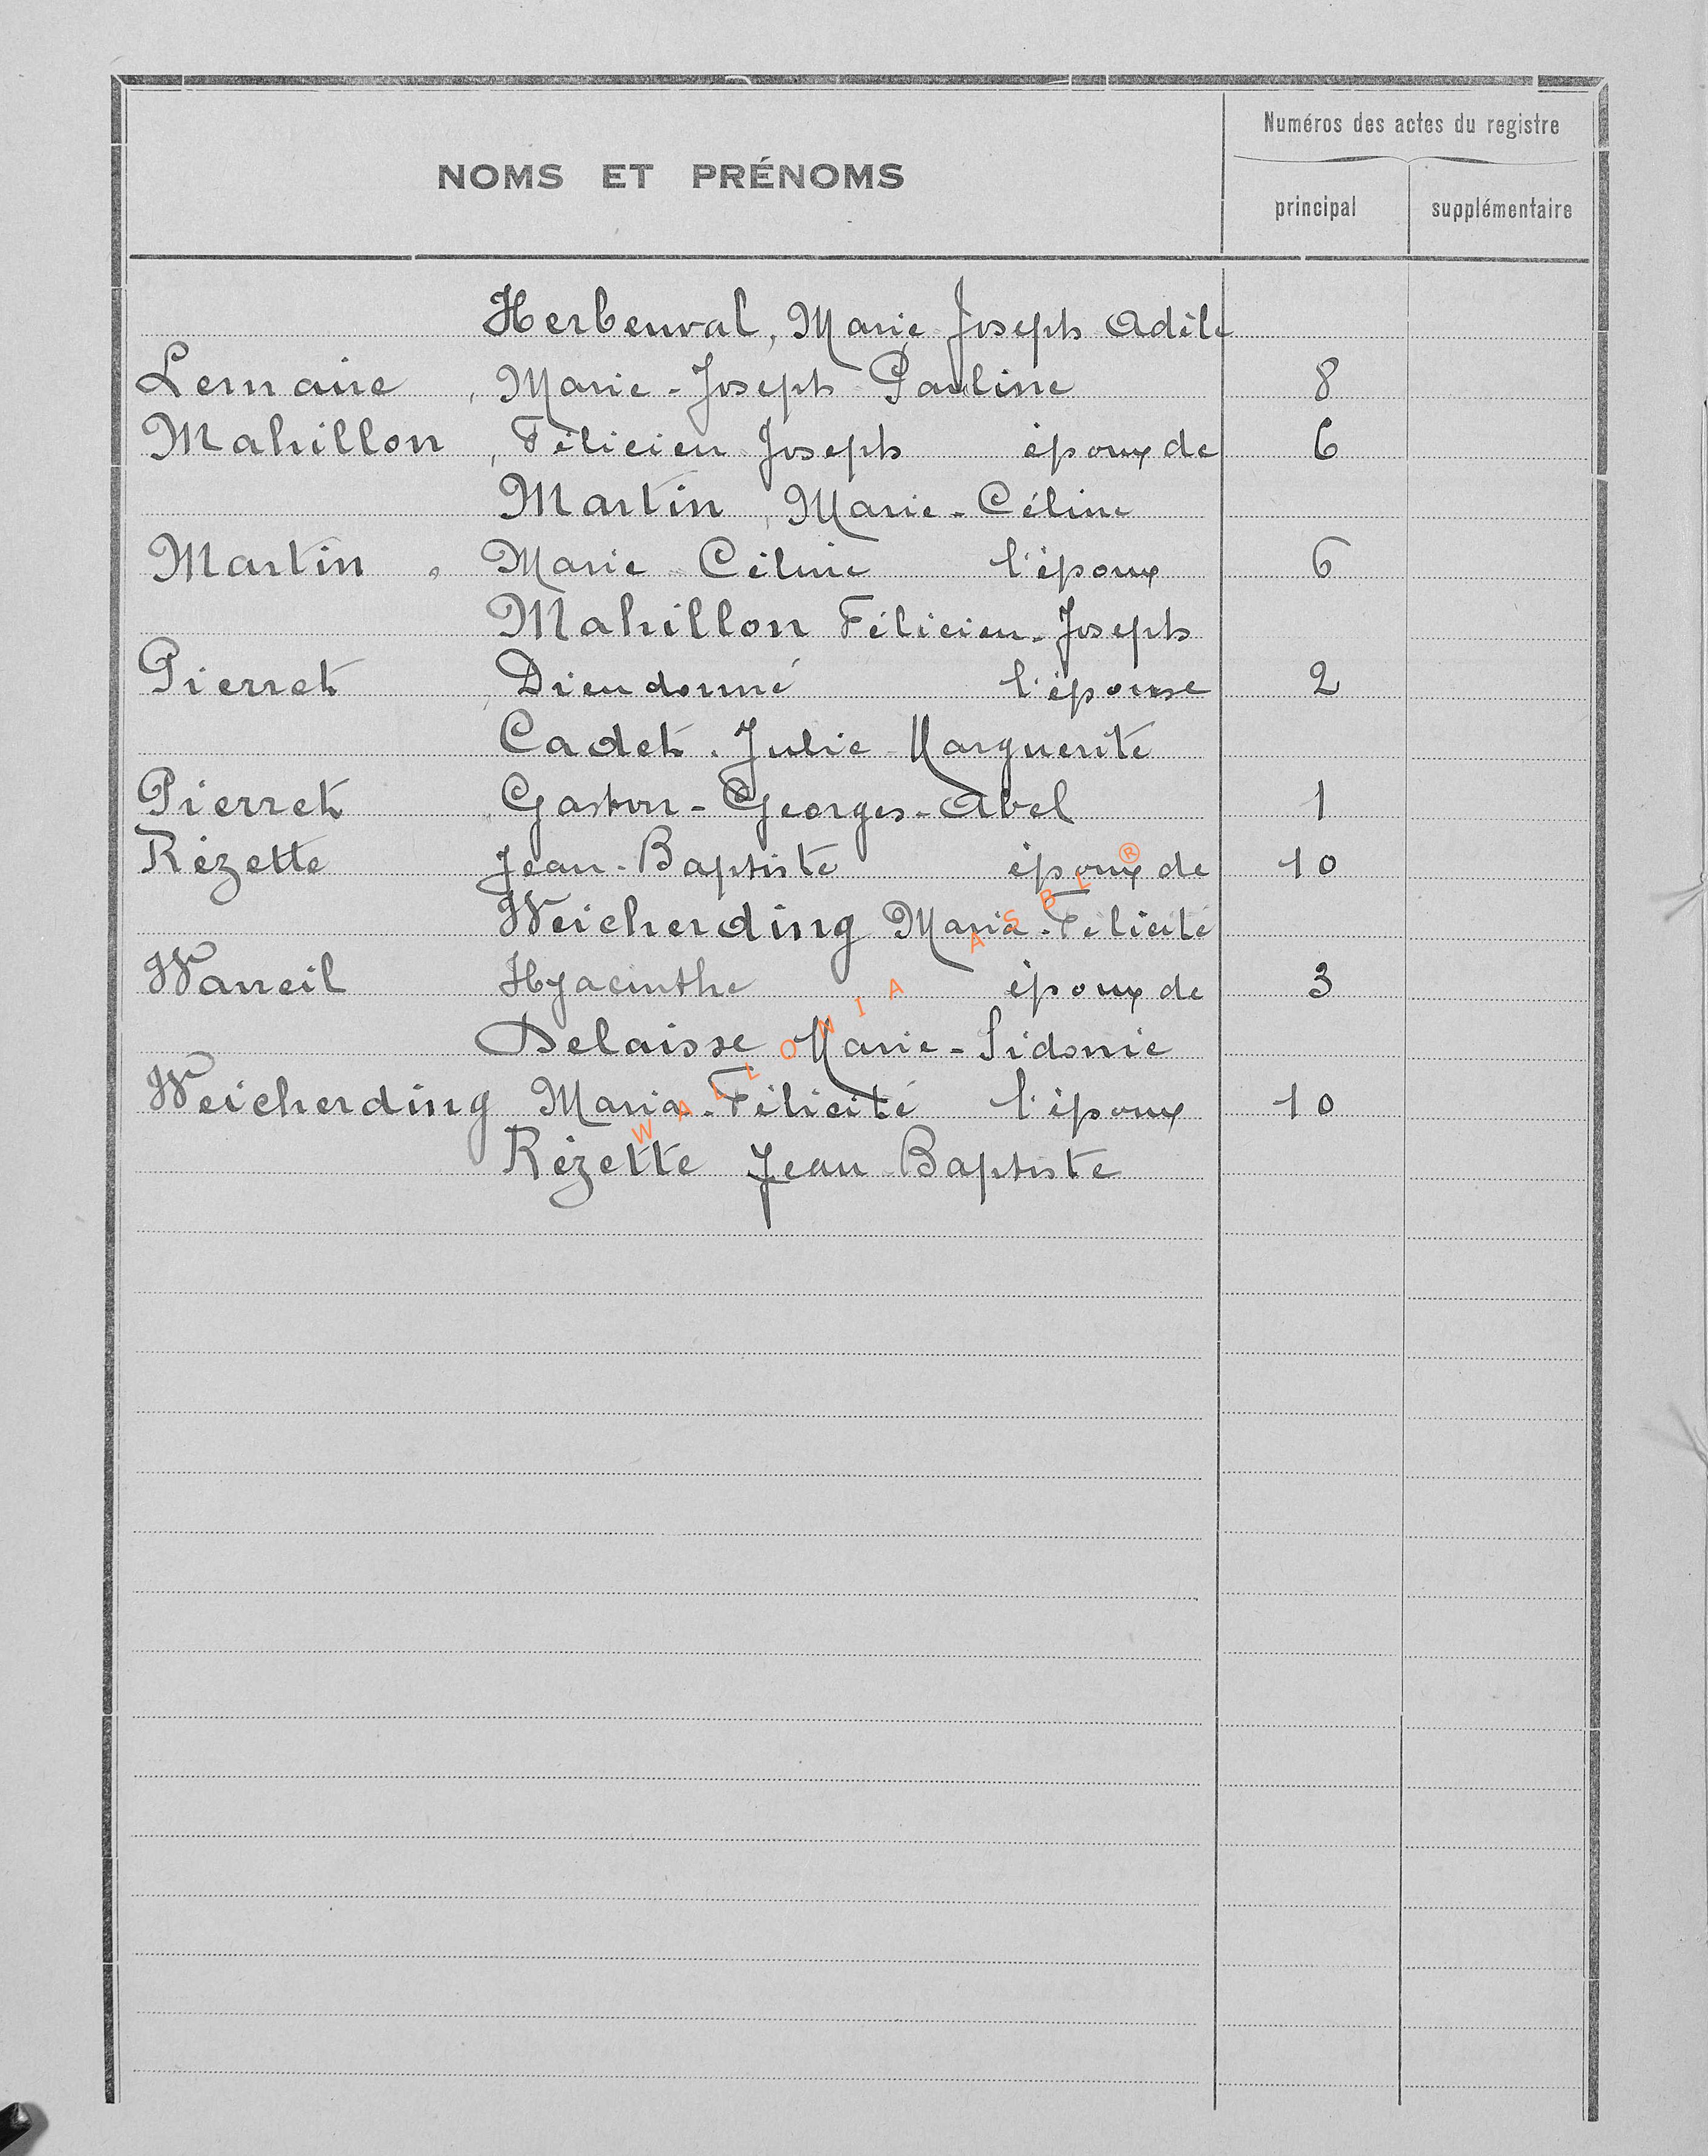 NOMS ET PRÉNOMS
Numéros des actes du registre
principal supplémentaire
Herbeuval, Marie Joseph Adèle
Lemaire, Marie-Joseph Pauline 8
Mahillon, Félicien Joseph époux de 6
Martin, Marie-Céline
Martin, Marie Céline l'époux 6
Mahillon Félicien-Joseph
Pierret, Dieudonné l'épouse 2
Cadet. Julie Marguerite
Pierret, Gaston-Georges-Abel 1
Rézette Jean-Baptiste époux de 10
Weicherding Maria-Félicité
Warreil Hyacinthe époux de 3
Delaisse Marie-Sidonie
Weicherding Maria-Félicité l'époux 10
Rézette Jean Baptiste
WALLONIA ASBL ®